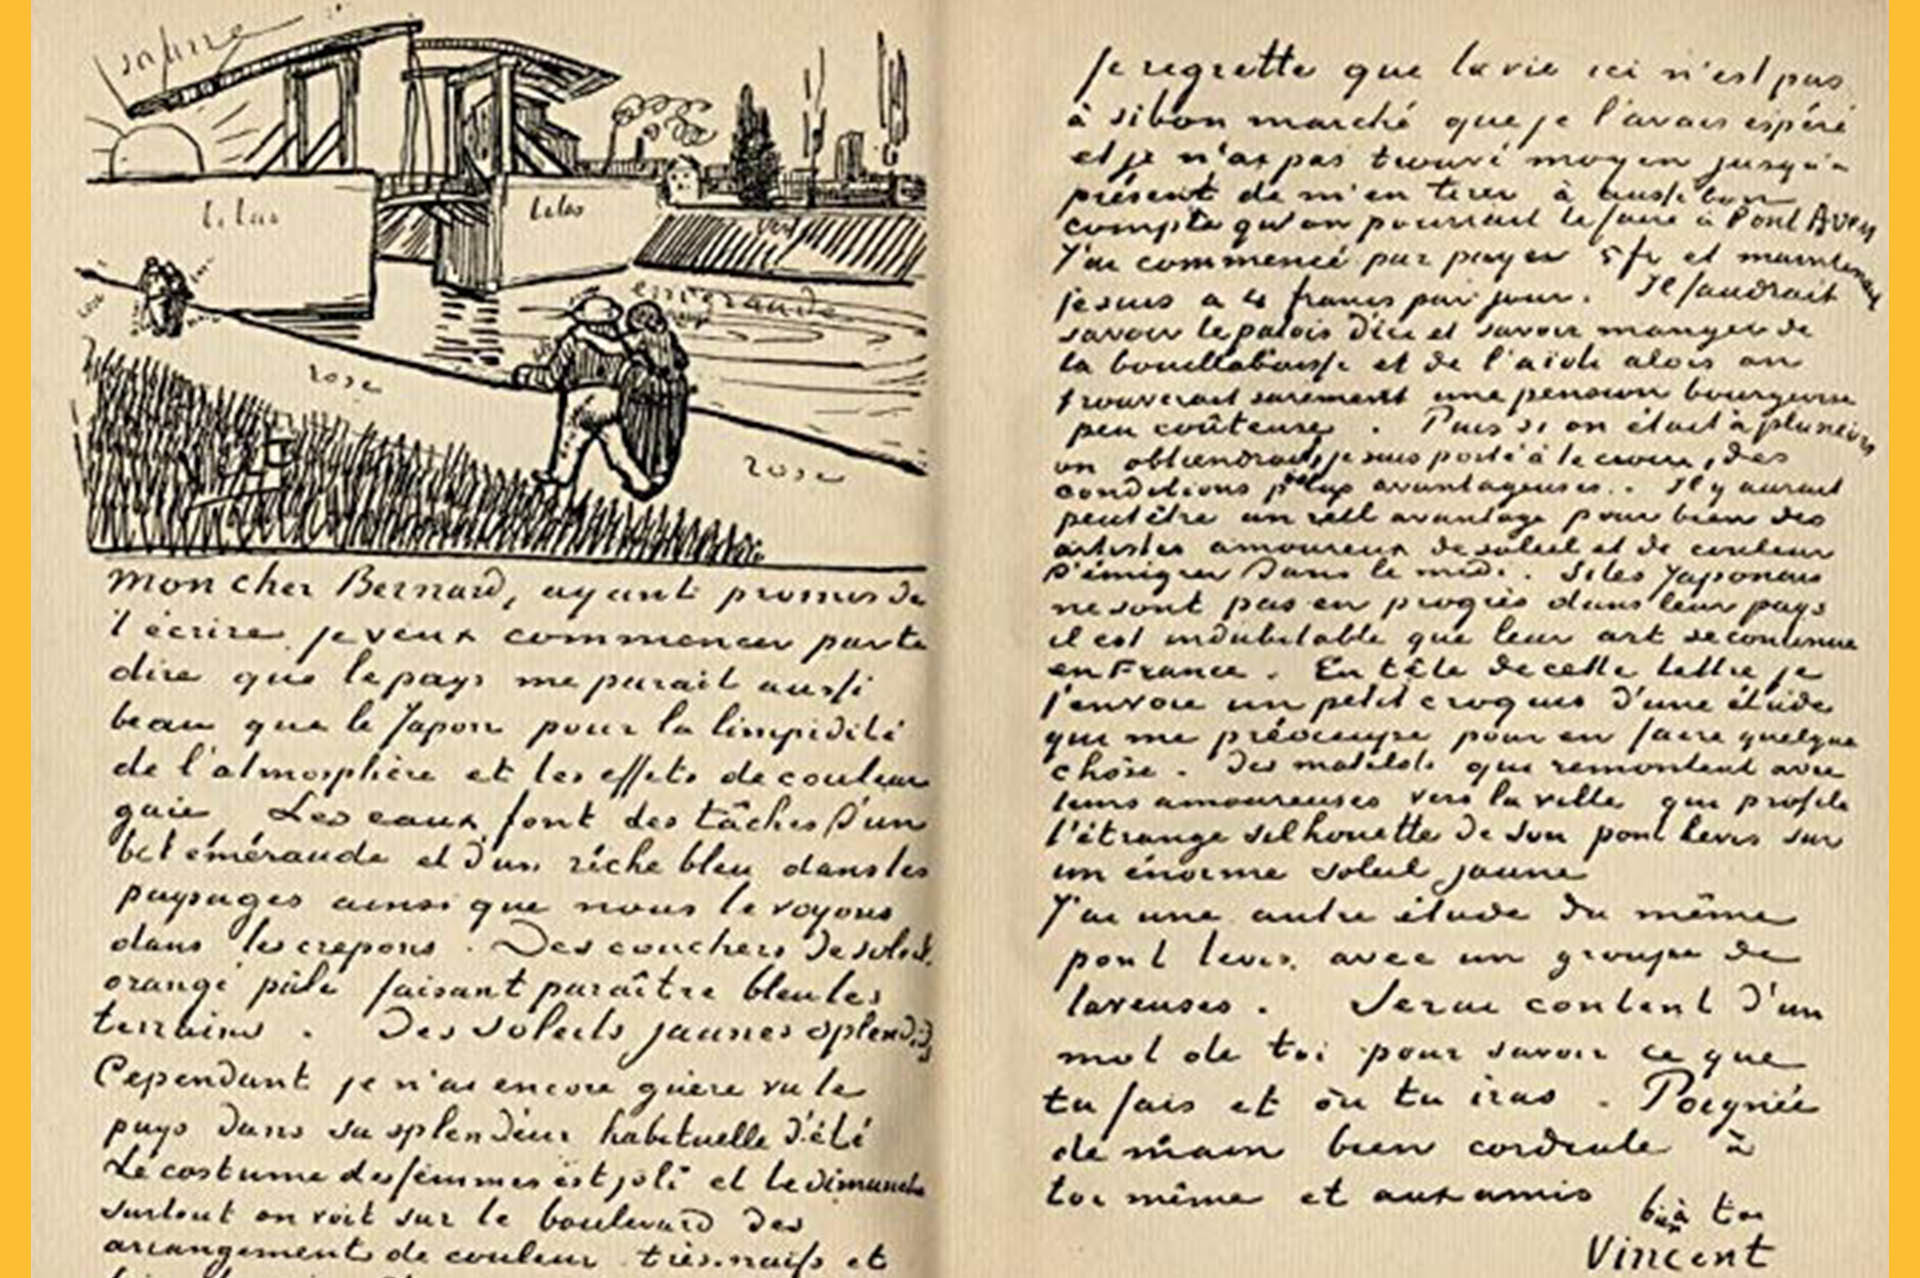 jaune
lilas
lilas
vert
émeraude
rose
rose
Mon cher Bernard, ayant promis de
t'écrire je veux commencer par te
dire que le pays me parait aussi
beau que le Japon pour la limpidité
de l'atmosphère et les effets de couleur
gaie Les eaux font des tâches d'un
bel éméraude et d'un riche bleu dans les
paysages ainsi que nous le voyons
dans les crepons. Des couchers de soleil
orangé pâle faisant paraître bleu les
terrains. Des soleils jaunes splendides
Cependant je n'ai encore guère vu le
pays dans sa splendeur habituelle d'été
Le costume des femmes est joli et le dimanche
surtout on voit sur le boulevard des
arrangements de couleur très naifs et
Je regrette que la vie ici n'est pas
à si bon marché que je l'avais espéré
et je n'ai pas trouvé moyen jusqu'à
présent de m'en tirer à aussi bon
compte qu'on pourrait le faire à Pont Aven
J'ai commencé par payer 5 fr et maintenant
je suis à 4 francs par jour. Il faudrait
savoir le patois d'ici et savoir manger de
la bouillabaisse et de l'aioli alors on
trouverait surement une pension bourgeoise
peu coûteuse. Puis si on était à plusieurs
on obtiendrait, je suis porté à le croire, des
conditions plus avantageuses. Il y aurait
peutêtre un réel avantage pour bien des
artistes amoureux de soleil et de couleur
d'émigrer dans le midi. Si les Japonais
ne sont pas en progrès dans leur pays
il est indubitable que leur art se continue
en France. En tête de cette lettre je
t'envoie un petit croquis d'une étude
qui me préoccupe pour en faire quelque
chôse. Des matelots qui remontent avec
leurs amoureuses vers la ville qui profile
l'étrange silhouette de son pont levis sur
un énorme soleil jaune
J'ai une autre étude du même
pont levis avec un groupe de
laveuses. Serai content d'un
mot de toi pour savoir ce que
tu fais et où tu iras. Poignée
de main bien cordiale à
toi même et aux amis
bien à toi
Vincent